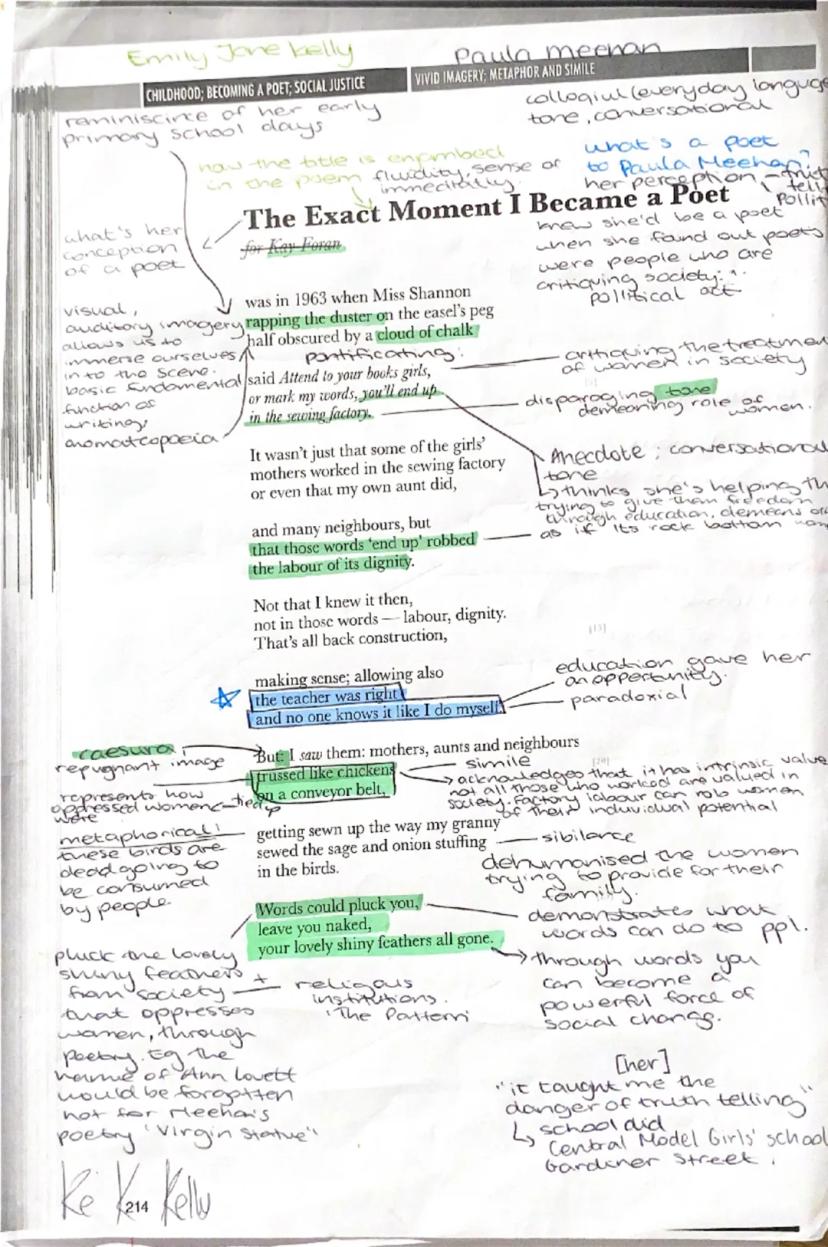 Emily Jane Kelly
Paula Meehan
CHILDHOOD; BECOMING A POET; SOCIAL JUSTICE
VIVID IMAGERY; METAPHOR AND SIMILE
reminiscinc of her early
primary school days
colloqiul (everyday language
tone, conversational
how the title is enjmbed
in the poem
fluidity, sense of
immediatly.
what's a poet
to Paula Meehan?
her perception
The Exact Moment I Became a Poet
for Kay Foran
what's her
conception
of a poet
knew she'd be a poet
when she found out poets
were people who are
critiquing society:
political act
visual,
auditory imagery
allows us to
immerse ourselves
into the scene.
basic fundamental
function of
writing,
onomatcopoeia
was in 1963 when Miss Shannon
rapping the duster on the easel's peg
half obscured by a cloud of chalk
pontificating:
said Attend to your books girls,
or mark my words, you'll end up
in the sewing factory.
critiquing the treatmen
of women in society
disparaging tone
demeaning role of
women.
It wasn't just that some of the girls'
mothers worked in the sewing factory
or even that my own aunt did,
Anecdote; conversational
tone
thinks she's helping th
trying to give them freedom
through education, demeans
as if its rock bottom
and many neighbours, but
that those words 'end up' robbed
the labour of its dignity.
Not that I knew it then,
not in those words — labour, dignity.
That's all back construction,
[15]
making sense; allowing also
the teacher was right
and no one knows it like I do myself.
education gave her
an opportunity.
paradoxial
caesura;
repugnant image
represents how
oppressed women
were
tied up
But: I saw them: mothers, aunts and neighbours
trussed like chickens
on a conveyor belt,
simile
[20]
acknowledges that it has intrinsic value
not all those who worked are valued in
society. Factory labour can rob women
of their induvidual potential
metaphorical:
these birds are
dead going to
be consumed
by people.
getting sewn up the way my granny
sewed the sage and onion stuffing
in the birds.
sibilance
dehumanised the women
trying to provide for their
family.
Words could pluck you,
leave you naked,
your lovely shiny feathers all gone.
demonstrates what
words can do to ppl.
through words you
can become a
powerful force of
social change.
pluck the lovely
shiny feathers
from society
that oppresses
women, through
poetry. Eg the
name of Ann Lovett
would be forgotten
not for Meehan's
poetry "Virgin Statue"
+ religous
institutions.
'The Pattern'
[her]
"it taught me the
danger of truth telling"
school did
Central Model Girls' school
Gardiner Street.
214
Kelly